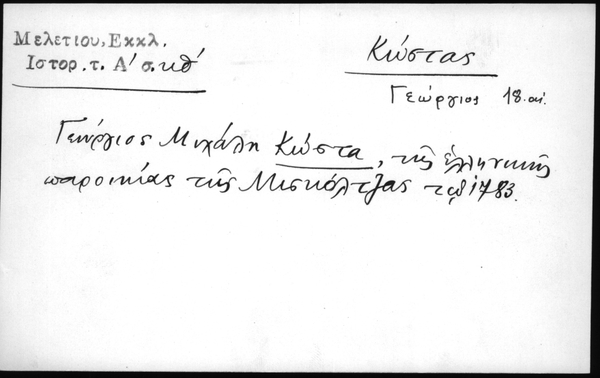 Μελετίου, Εκκλ.
Ιστορ. τ. Α΄ σ. κθ΄
Κώστας
Γεώργιος 18. αἰ.
Γεώργιος Μιχάλη Κώστα, τῆς ἑλληνικῆς
παροικίας τῆς Μισκόλτζας τῷ 1783.